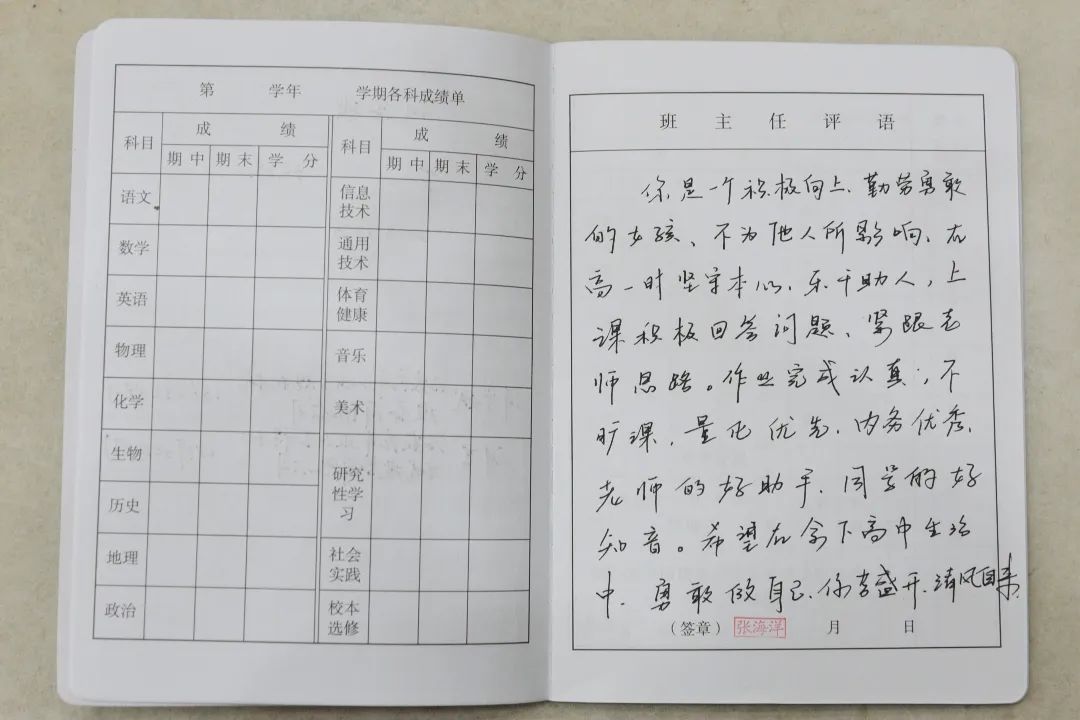 第 学年 学期各科成绩单
科目 成 绩 科目 成 绩
期中 期末 学分 期中 期末 学分
语文 信息技术
数学 通用技术
英语 体育健康
物理 音乐
化学 美术
生物 研究性学习
历史
地理 社会实践
政治 校本选修
班主任评语
你是一个积极向上、勤劳勇敢
的女孩、不为他人所影响、在
高一时坚守本心、乐于助人，上
课积极回答问题、紧跟老
师思路。作业完成认真，不
旷课，量化优先、内务优秀、
老师的好助手、同学的好
知音。希望在余下高中生活
中、勇敢做自己、你若盛开、清风自来。
（签章）张海洋 月 日